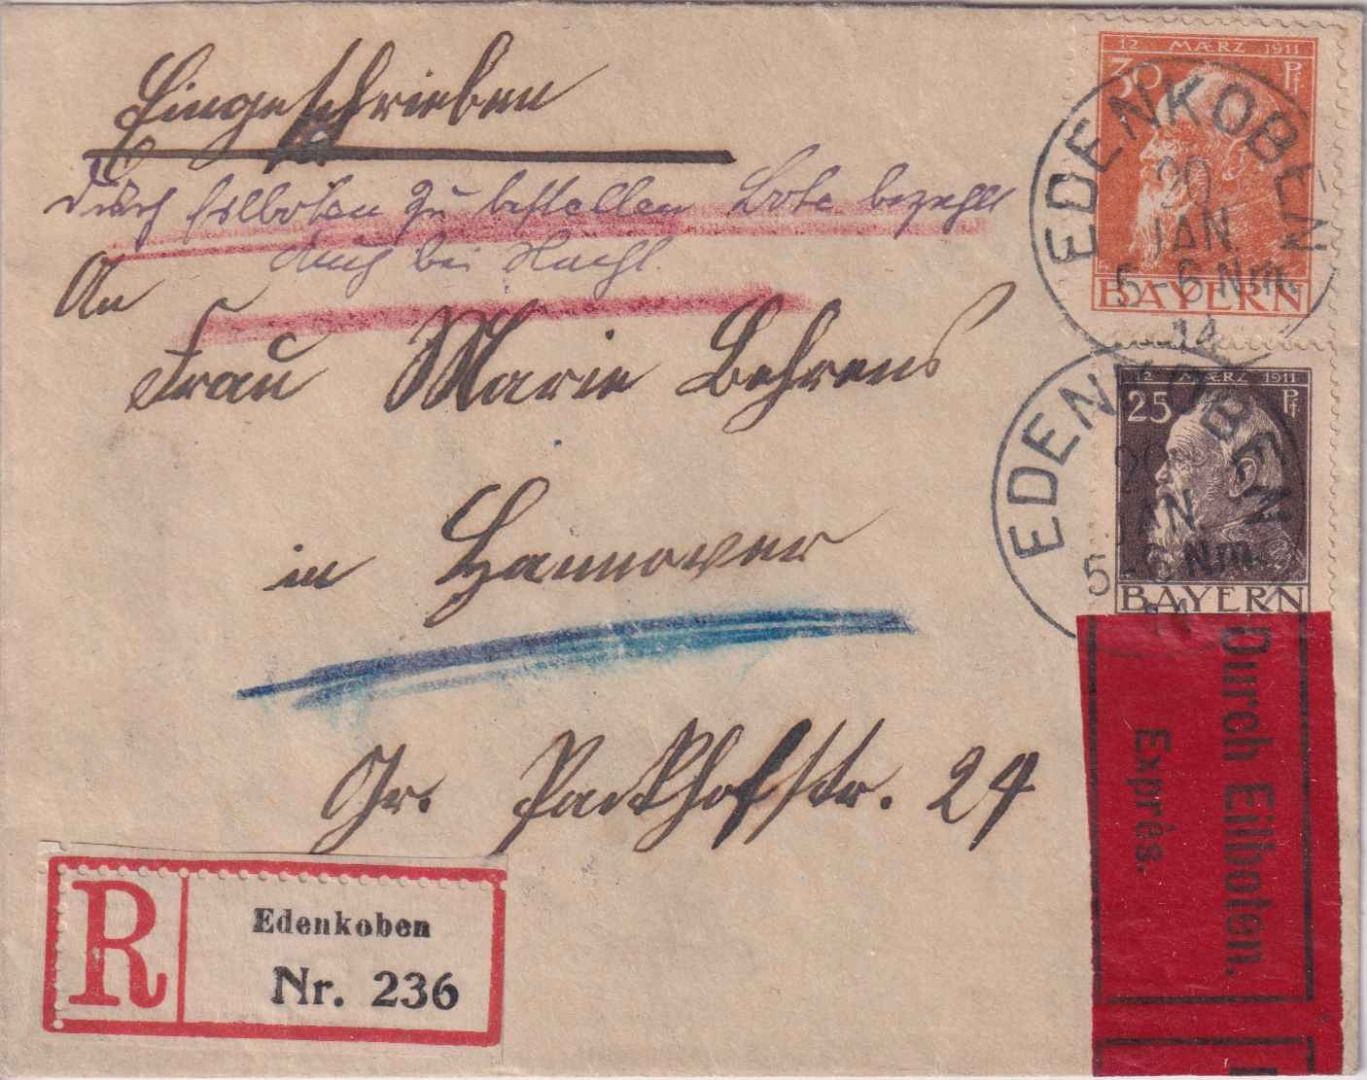 Eingeschrieben
durch Eilboten zu bestellen Bote bezahlt
Auch bei Nacht.
An
Frau Marie Behrens
in Hannover
Gr. Packhofstr. 24
12 MÆRZ 1911
30 Pf
BAYERN
EDENKOBEN
20
JAN
5-6 Nm.
14
12 MÆRZ 1911
25 Pf
BAYERN
EDENKOBEN
20
JAN
5-6 Nm.
14
Durch Eilboten.
Exprès.
R
Edenkoben
Nr. 236